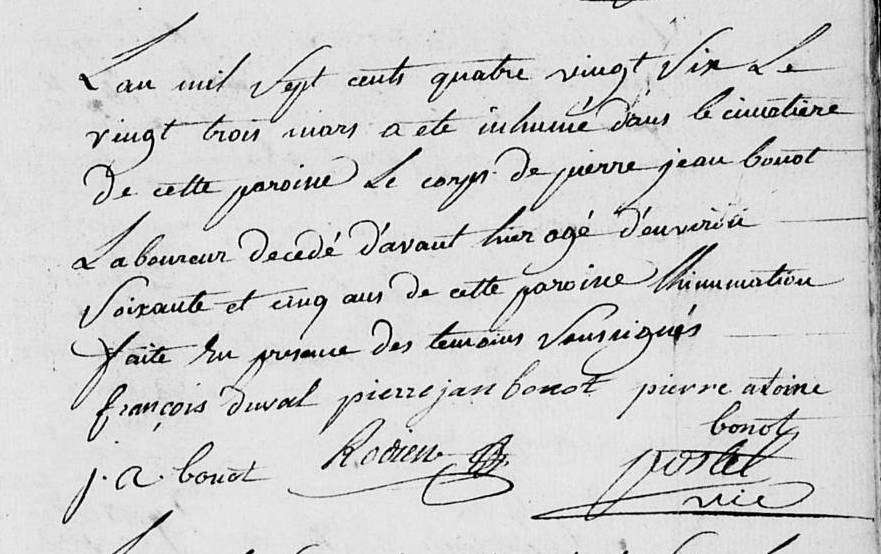 L an mil Sept cents quatre vingt Six Le
vingt trois mars a ete inhumé dans le cimetiere
De cette paroisse Le corps De pierre jean bonot
Laboureur decedé d'avant hier agé d'environ
Soixante et cinq ans de cette paroisse l'hinumation
faite En presence des temoins Soussignés
françois duval pierre jan bonot pierre atoine
bonot
j. a. bonot Rodien postel
vic